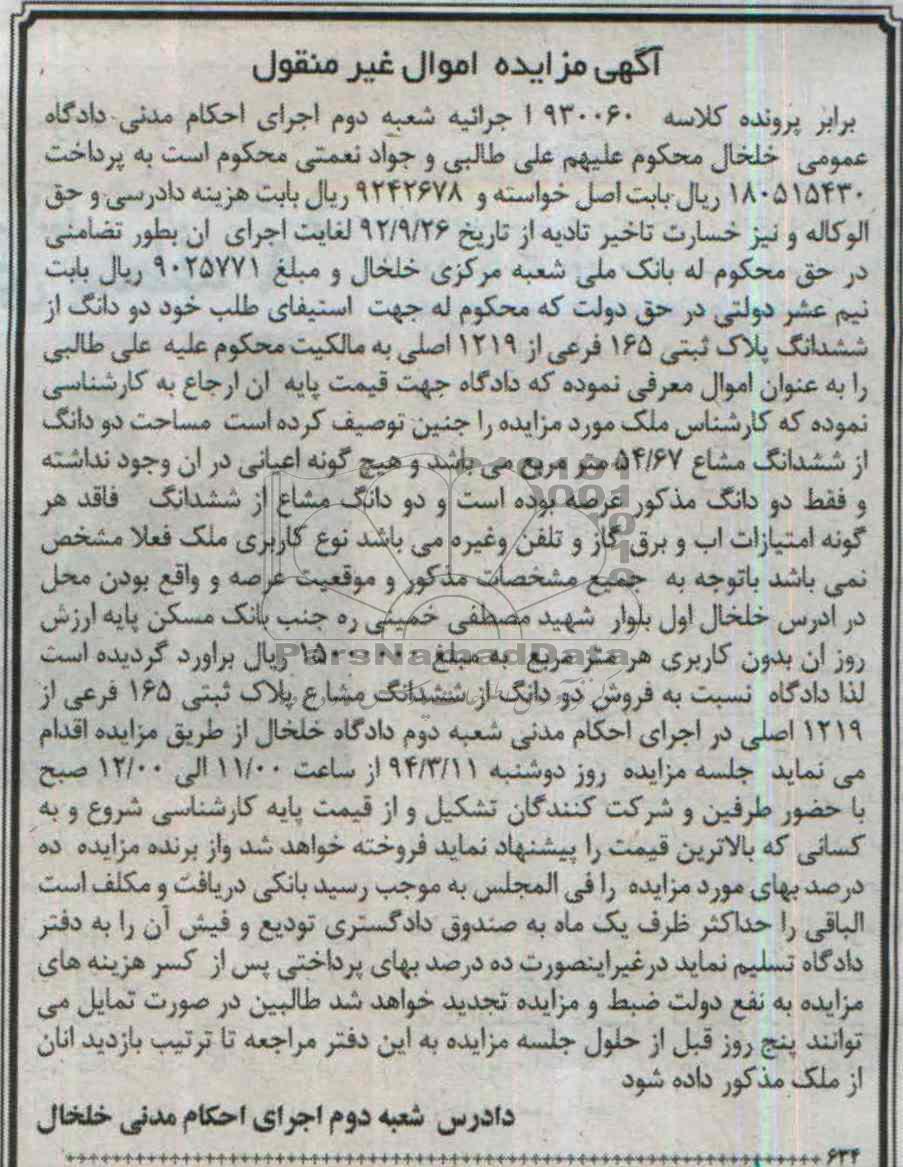 آگهی مزایده اموال غیر منقول
برابر پرونده کلاسه ۹۳۰۰۶۰ ا جرائیه شعبه دوم اجرای احکام مدنی دادگاه
عمومی خلخال محکوم علیهم علی طالبی و جواد نعمتی محکوم است به پرداخت
۱۸۰۵۱۵۴۳۰ ریال بابت اصل خواسته و ۹۲۴۲۶۷۸ ریال بابت هزینه دادرسی و حق
الوکاله و نیز خسارت تاخیر تادیه از تاریخ ۹۲/۹/۲۶ لغایت اجرای ان بطور تضامنی
در حق محکوم له بانک ملی شعبه مرکزی خلخال و مبلغ ۹۰۲۵۷۷۱ ریال بابت
نیم عشر دولتی در حق دولت که محکوم له جهت استیفای طلب خود دو دانگ از
ششدانگ پلاک ثبتی ۱۶۵ فرعی از ۱۲۱۹ اصلی به مالکیت محکوم علیه علی طالبی
را به عنوان اموال معرفی نموده که دادگاه جهت قیمت پایه ان ارجاع به کارشناسی
نموده که کارشناس ملک مورد مزایده را جنین توصیف کرده است مساحت دو دانگ
از ششدانگ مشاع ۵۴/۶۷ متر مربع می باشد و هیچ گونه اعیانی در ان وجود نداشته
و فقط دو دانگ مذکور عرصه بوده است و دو دانگ مشاع از ششدانگ فاقد هر
گونه امتیازات اب و برق گاز و تلفن وغیره می باشد نوع کاربری ملک فعلا مشخص
نمی باشد باتوجه به جمیع مشخصات مذکور و موقعیت عرصه و واقع بودن محل
در ادرس خلخال اول بلوار شهید مصطفی خمینی ره جنب بانک مسکن پایه ارزش
روز ان بدون کاربری هر متر مربع به مبلغ ریال براورد گردیده است
لذا دادگاه نسبت به فروش دو دانگ از ششدانگ مشارع پلاک ثبتی ۱۶۵ فرعی از
۱۲۱۹ اصلی در اجرای احکام مدنی شعبه دوم دادگاه خلخال از طریق مزایده اقدام
می نماید جلسه مزایده روز دوشنبه ۹۴/۳/۱۱ از ساعت ۱۱/۰۰ الی ۱۲/۰۰ صبح
با حضور طرفین و شرکت کنندگان تشکیل و از قیمت پایه کارشناسی شروع و به
کسانی که بالاترین قیمت را پیشنهاد نماید فروخته خواهد شد واز برنده مزایده ده
درصد بهای مورد مزایده را فی المجلس به موجب رسید بانکی دریافت و مکلف است
الباقی را حداکثر ظرف یک ماه به صندوق دادگستری تودیع و فیش آن را به دفتر
دادگاه تسلیم نماید درغیراینصورت ده درصد بهای پرداختی پس از کسر هزینه های
مزایده به نفع دولت ضبط و مزایده تجدید خواهد شد طالبین در صورت تمایل می
توانند پنج روز قبل از حلول جلسه مزایده به این دفتر مراجعه تا ترتیب بازدید انان
از ملک مذکور داده شود
دادرس شعبه دوم اجرای احکام مدنی خلخال
۶۳۴
ParsNamadData